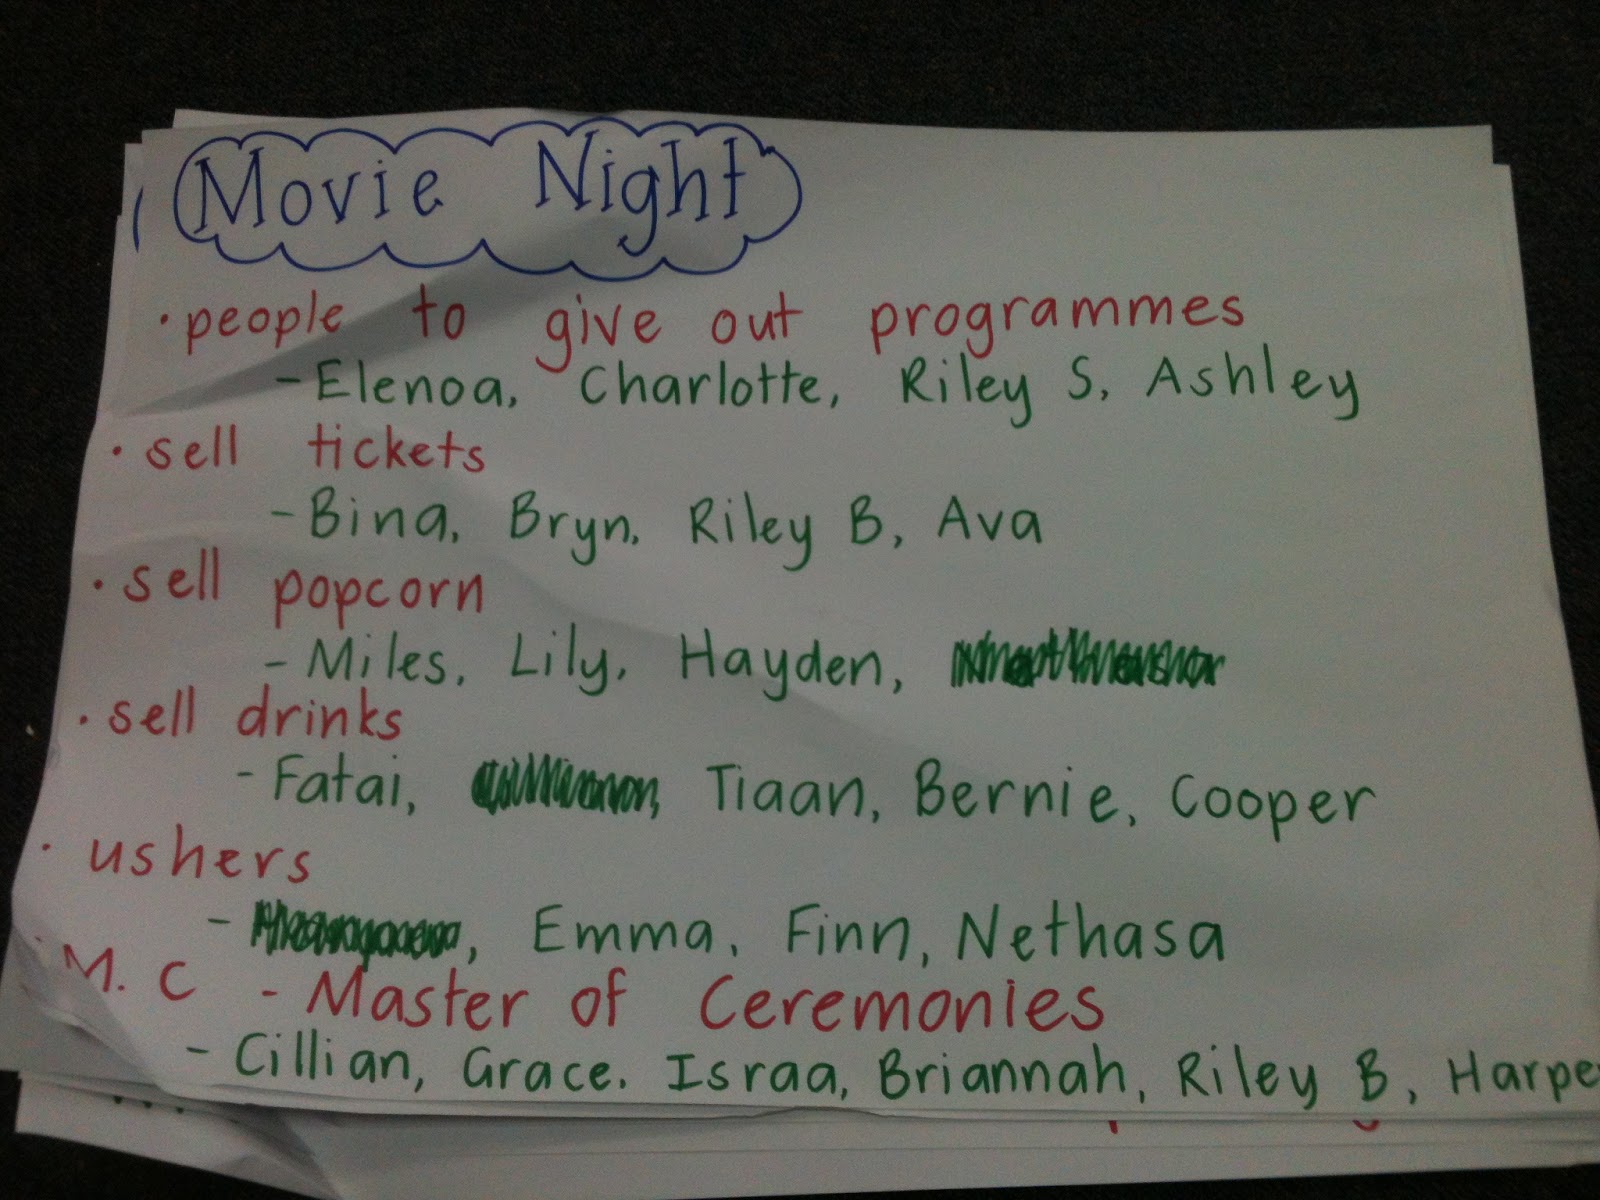 Movie Night
• people to give out programmes
- Elenoa, Charlotte, Riley S, Ashley
• sell tickets
- Bina, Bryn, Riley B, Ava
• sell popcorn
- Miles, Lily, Hayden,
• sell drinks
- Fatai, Tiaan, Bernie, Cooper
• ushers
- , Emma, Finn, Nethasa
• M. C - Master of Ceremonies
- Cillian, Grace. Israa, Briannah, Riley B, Harpe